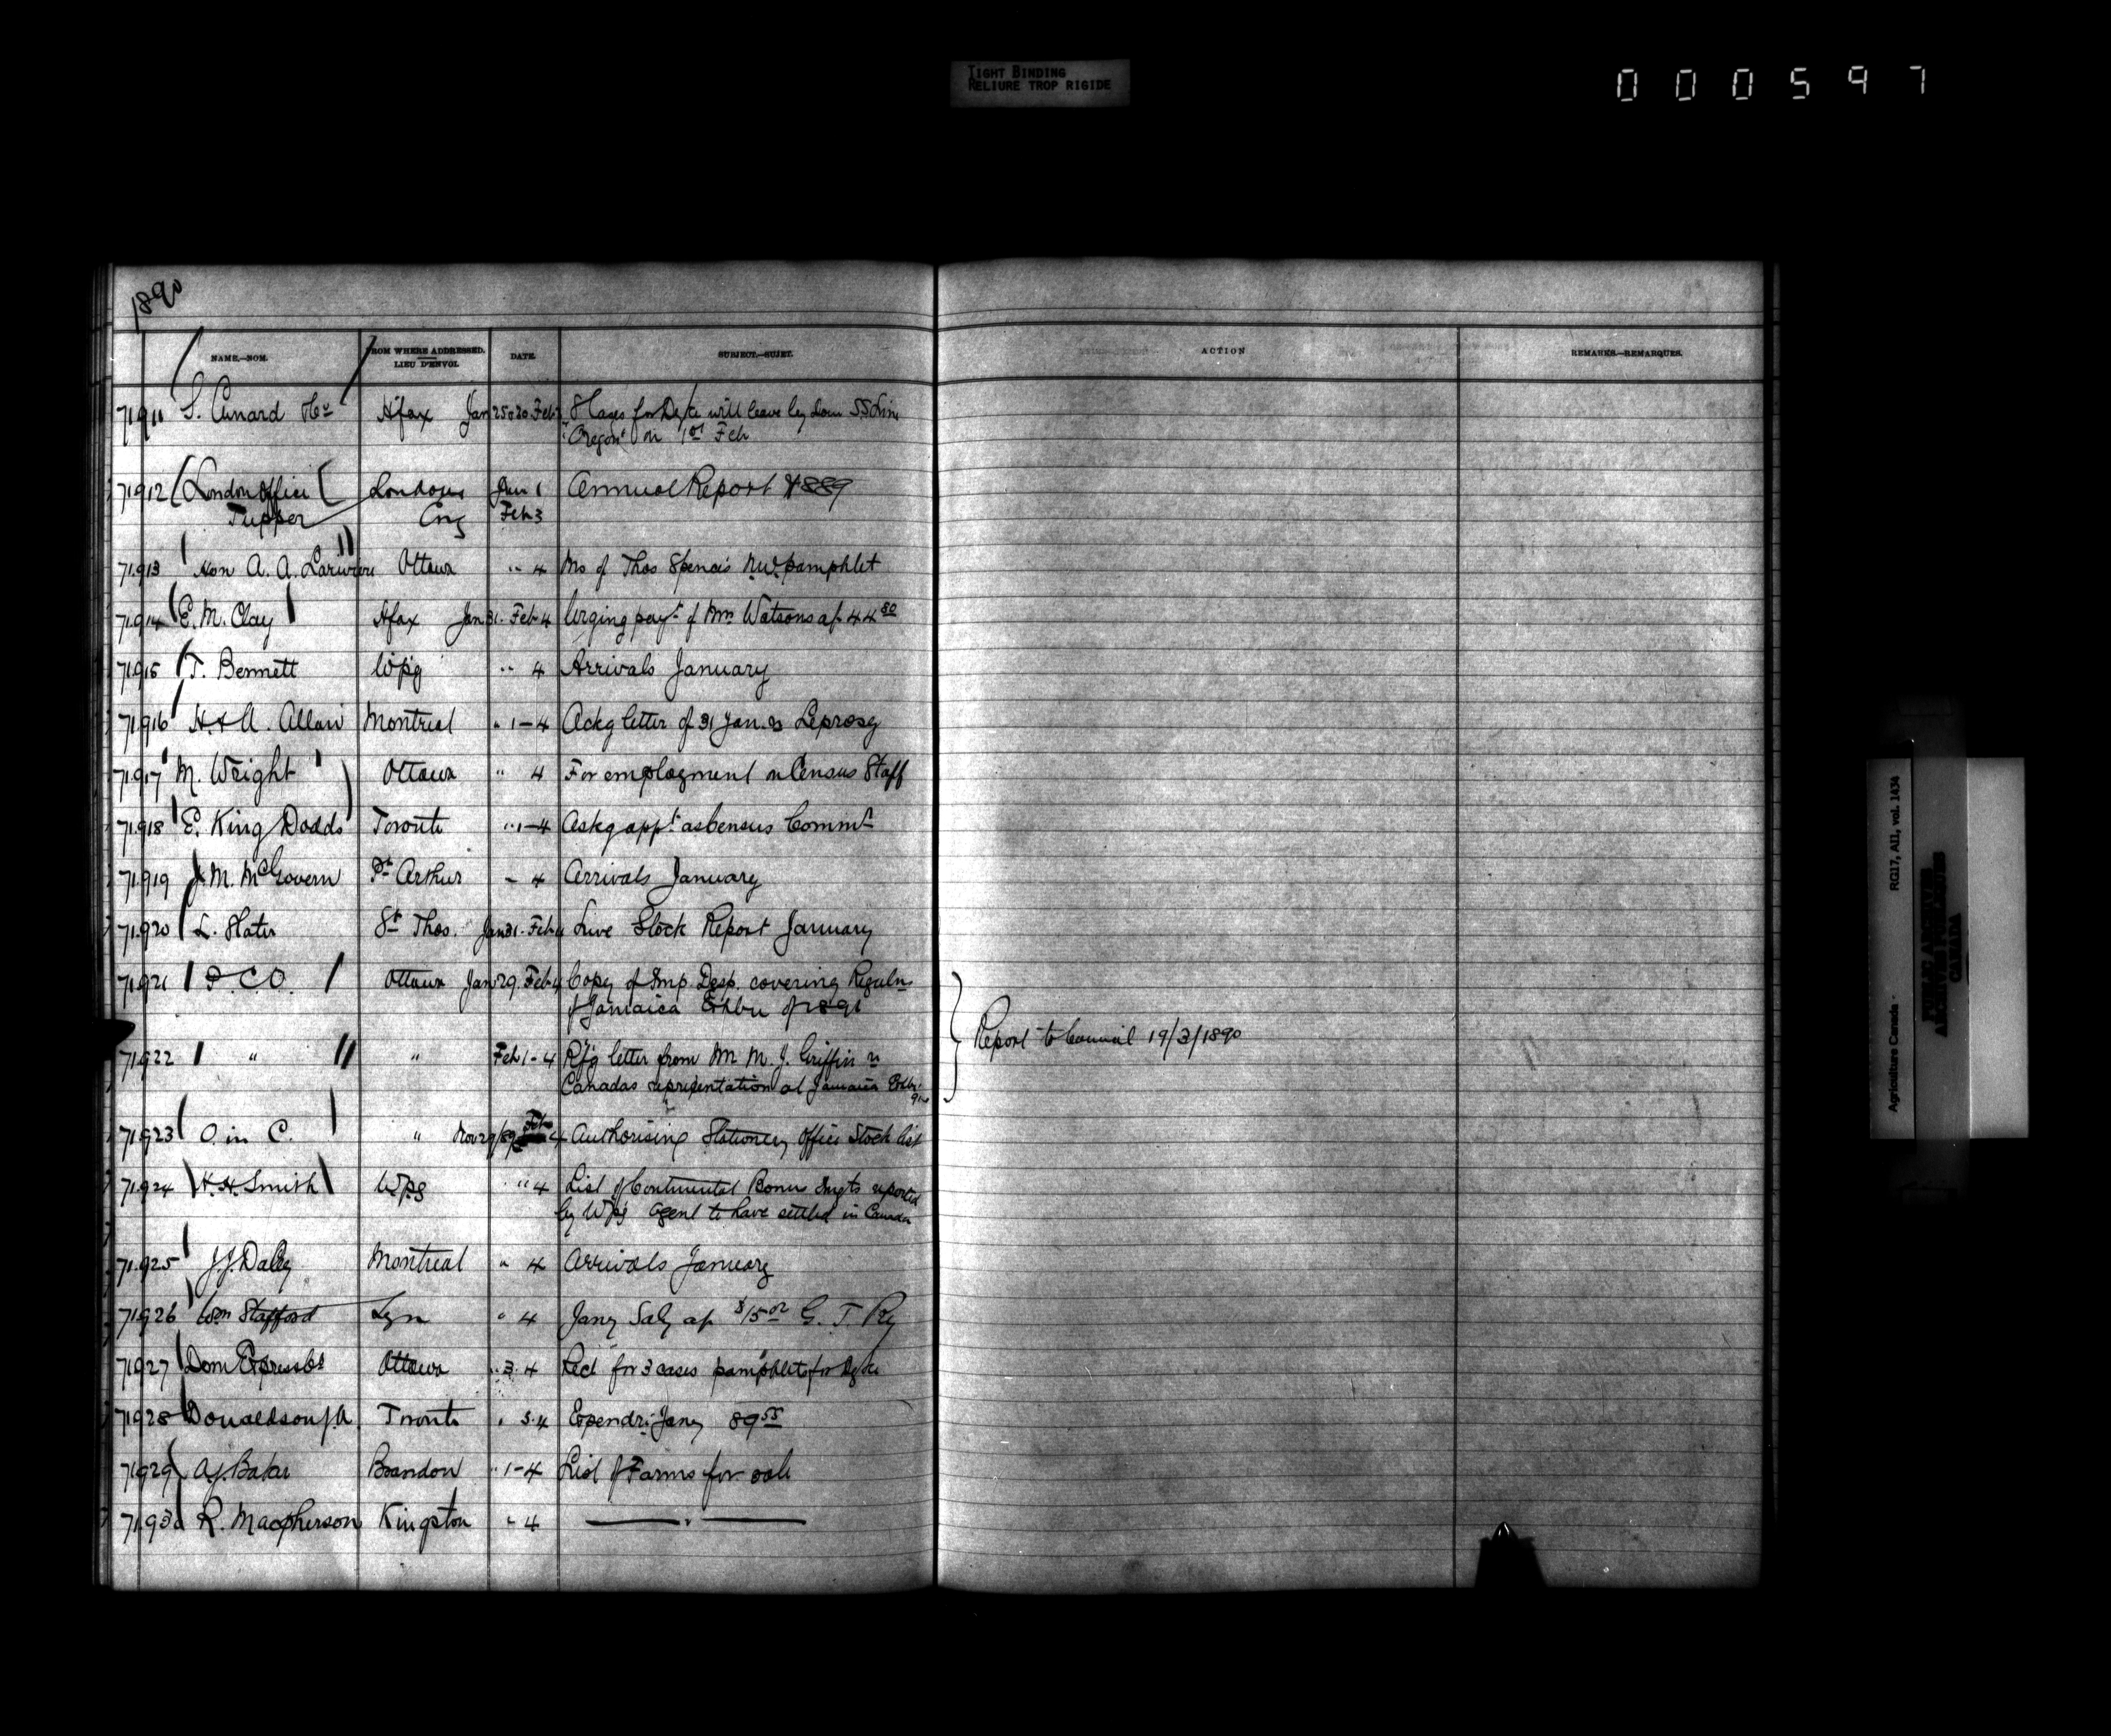 TIGHT BINDING
RELIURE TROP RIGIDE
000597
1890
NAME.—NOM. FROM WHERE ADDRESSED. LIEU D'ENVOI. DATE. SUBJECT.—SUJET. ACTION REMARKS.—REMARQUES.
71911 S. Cunard & Co Hfax Jan Feb 3 8 Cases for Dyke will leave by Dom SS Line
"Oregon" on 1st Feb
71912 London Office London Jan 1 Annual Report 1889
Tupper Eng Feb 3
71913 Hon A. A. Lariviere Ottawa " 4 Ms of Thos Spence's N.W. pamphlet
71914 E. M. Clay Hfax Jan 31. Feb 4 Urging payt of Mrs Watsons a/c 44 80
71915 T. Bennett Wpg " 4 Arrivals January
71916 H. & A. Allan Montreal " 1-4 Ackg letter of 31 Jan. re Leprosy
71917 M. Wright Ottawa " 4 For employment on Census Staff
71918 E. King Dodds Toronto " 1-4 Askg appt as Census Commr
71919 J. M. McGovern Pt Arthur " 4 Arrivals January
71920 L. Slater St Thos. Jan 31. Feb 4 Live Stock Report January
71921 P. C. O. Ottawa Jan 29. Feb 4 Copy of Imp. Desp. covering Reguln
of Jamaica Exhbn of 1891
Report to Council 19/3/1890
71922 " " Feb 1-4 Rfg letter from Mr M. J. Griffin re
Canadas representation at Jamaica Exbn
91
71923 O. in C. " Nov 29/89 Feb 4 Authorising Stationery Office Stock list
71924 H. H. Smith Wpg " 4 List of Continental Bonus Imgts reported
by Wpg Agent to have settled in Canada
71925 J. J. Daley Montreal " 4 Arrivals January
71926 Wm Stafford Lyn " 4 Jany Saly a/c $15 02 G. T. Ry
71927 Dom Express Co Ottawa " 3. 4 Rect for 3 cases pamphlets for Dyke
71928 Donaldson J. A. Toronto " 3. 4 Expendre Jany 89 55
71929 A. J. Baker Brandon " 1-4 List of Farms for sale
71930 R. Macpherson Kingston " 4 — " —
Agriculture Canada - RG17, AII, vol. 1434
PUBLIC ARCHIVES
ARCHIVES PUBLIQUES
CANADA